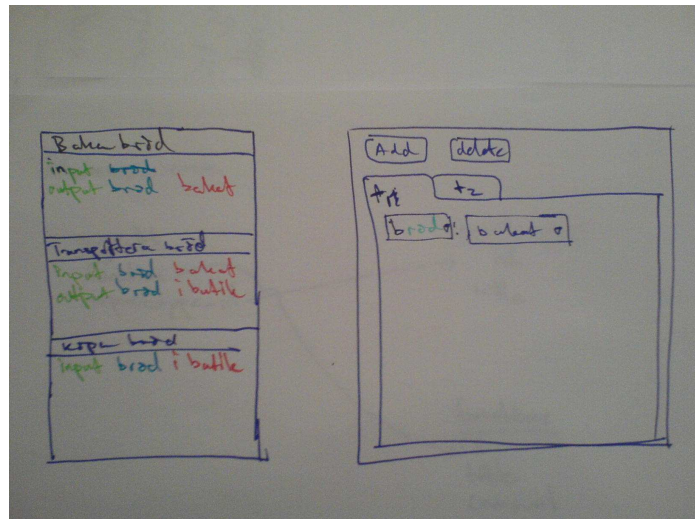 Baka bröd
input bröd
output bröd bakat
Transportera bröd
input bröd bakat
output bröd i butik
köpa bröd
input bröd i butik
Add delete
t2
bröd : bakat